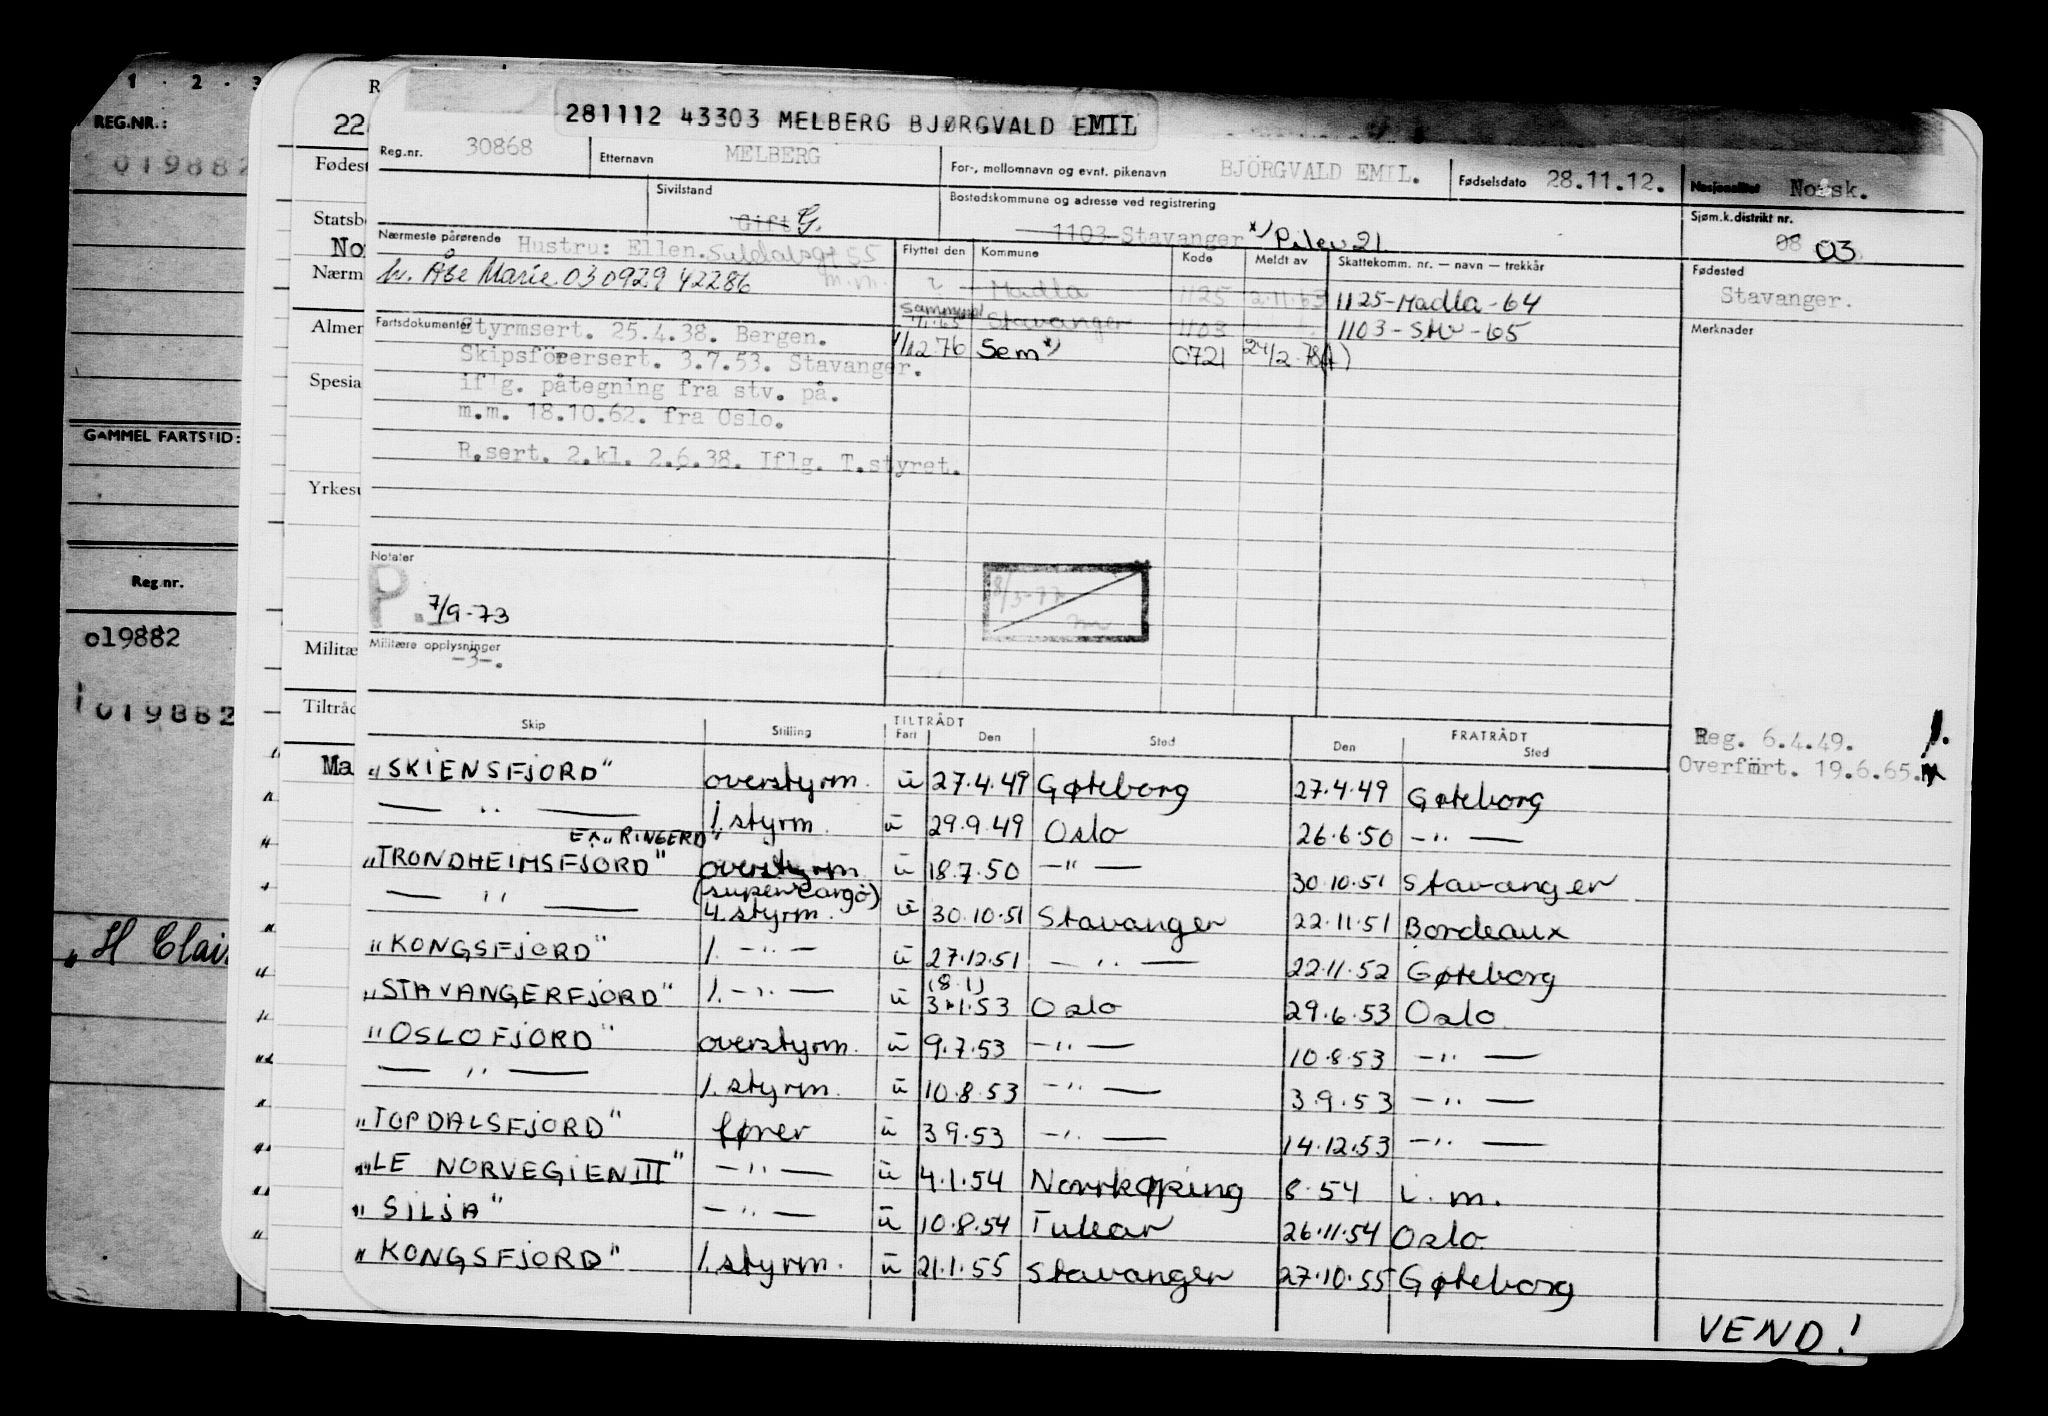 1 · 2 · 3
REG.NR.:
019882
GAMMEL FARTSTID:
Reg.nr.
o19882
019882
"H Clai
R
22
Fødest
Statsb
No
Nærm
Almer
Spesia
Yrkesu
Militæ
Tiltråd
Ma
281112 43303 MELBERG BJØRGVALD EMIL
Reg.nr. 30868 Etternavn MELBERG For-, mellomnavn og evnt. pikenavn BJÖRGVALD EMIL. Fødselsdato 28.11.12. Nasjonalitet Norsk.
Sivilstand Gift G. Bostedskommune og adresse ved registrering 1103 Stavanger x) Pilev 21 Sjøm.k.distrikt nr. 08 03
Nærmeste pårørende Hustru: Ellen. Suldalsgt 55 m.m.
h. Åbe Marie 030929 42286
Flyttet den Kommune Kode Meldt av Skattekomm. nr. — navn — trekkår
Madla 1125 2.11.63 1125-Madla-64
Stavanger 1103 1103-Stv-65
1/12 76 Sem x) 0721 24/2-78
Fødested
Stavanger.
Merknader
Fartsdokumenter Styrmsert. 25.4.38. Bergen.
Skipsförersert. 3.7.53. Stavanger.
iflg. påtegning fra stv. på.
m.m. 18.10.62. fra Oslo.
R.sert. 2.kl. 2.6.38. Iflg. T.styret.
Notater
P. 7/9-73
Militære opplysninger
-3-.
Skip Stilling TILTRÅDT Fart Den Sted FRATRÅDT Den Sted
Reg. 6.4.49.
Overfört. 19.6.65.
"SKIENSFJORD" overstyrm. u 27.4.49 Gøteborg 27.4.49 Gøteborg
— " — 1. styrm. u 29.9.49 Oslo 26.6.50 — " —
EX "RINGERD"
"TRONDHEIMSFJORD" overstyrm. u 18.7.50 — " — 30.10.51 Stavanger
(supercargo)
— " — 4. styrm. u 30.10.51 Stavanger 22.11.51 Bordeaux
"KONGSFJORD" 1. — " — u 27.12.51 — " — 22.11.52 Gøteborg
(8.1)
"STAVANGERFJORD" 1. — " — u 3.1.53 Oslo 29.6.53 Oslo
"OSLOFJORD" overstyrm. u 9.7.53 — " — 10.8.53 — " —
— " — 1. styrm. u 10.8.53 — " — 3.9.53 — " —
"TOPDALSFJORD" fører u 3 9.53 — " — 14.12.53 — " —
"LE NORVEGIEN III" — " — u 4.1.54 Norrkøping 8.54 i. m.
"SILJA" — " — u 10.8.54 Tulear 26.11.54 Oslo
"KONGSFJORD" 1. styrm. u 21.1.55 Stavanger 27.10.55 Gøteborg
VEND!